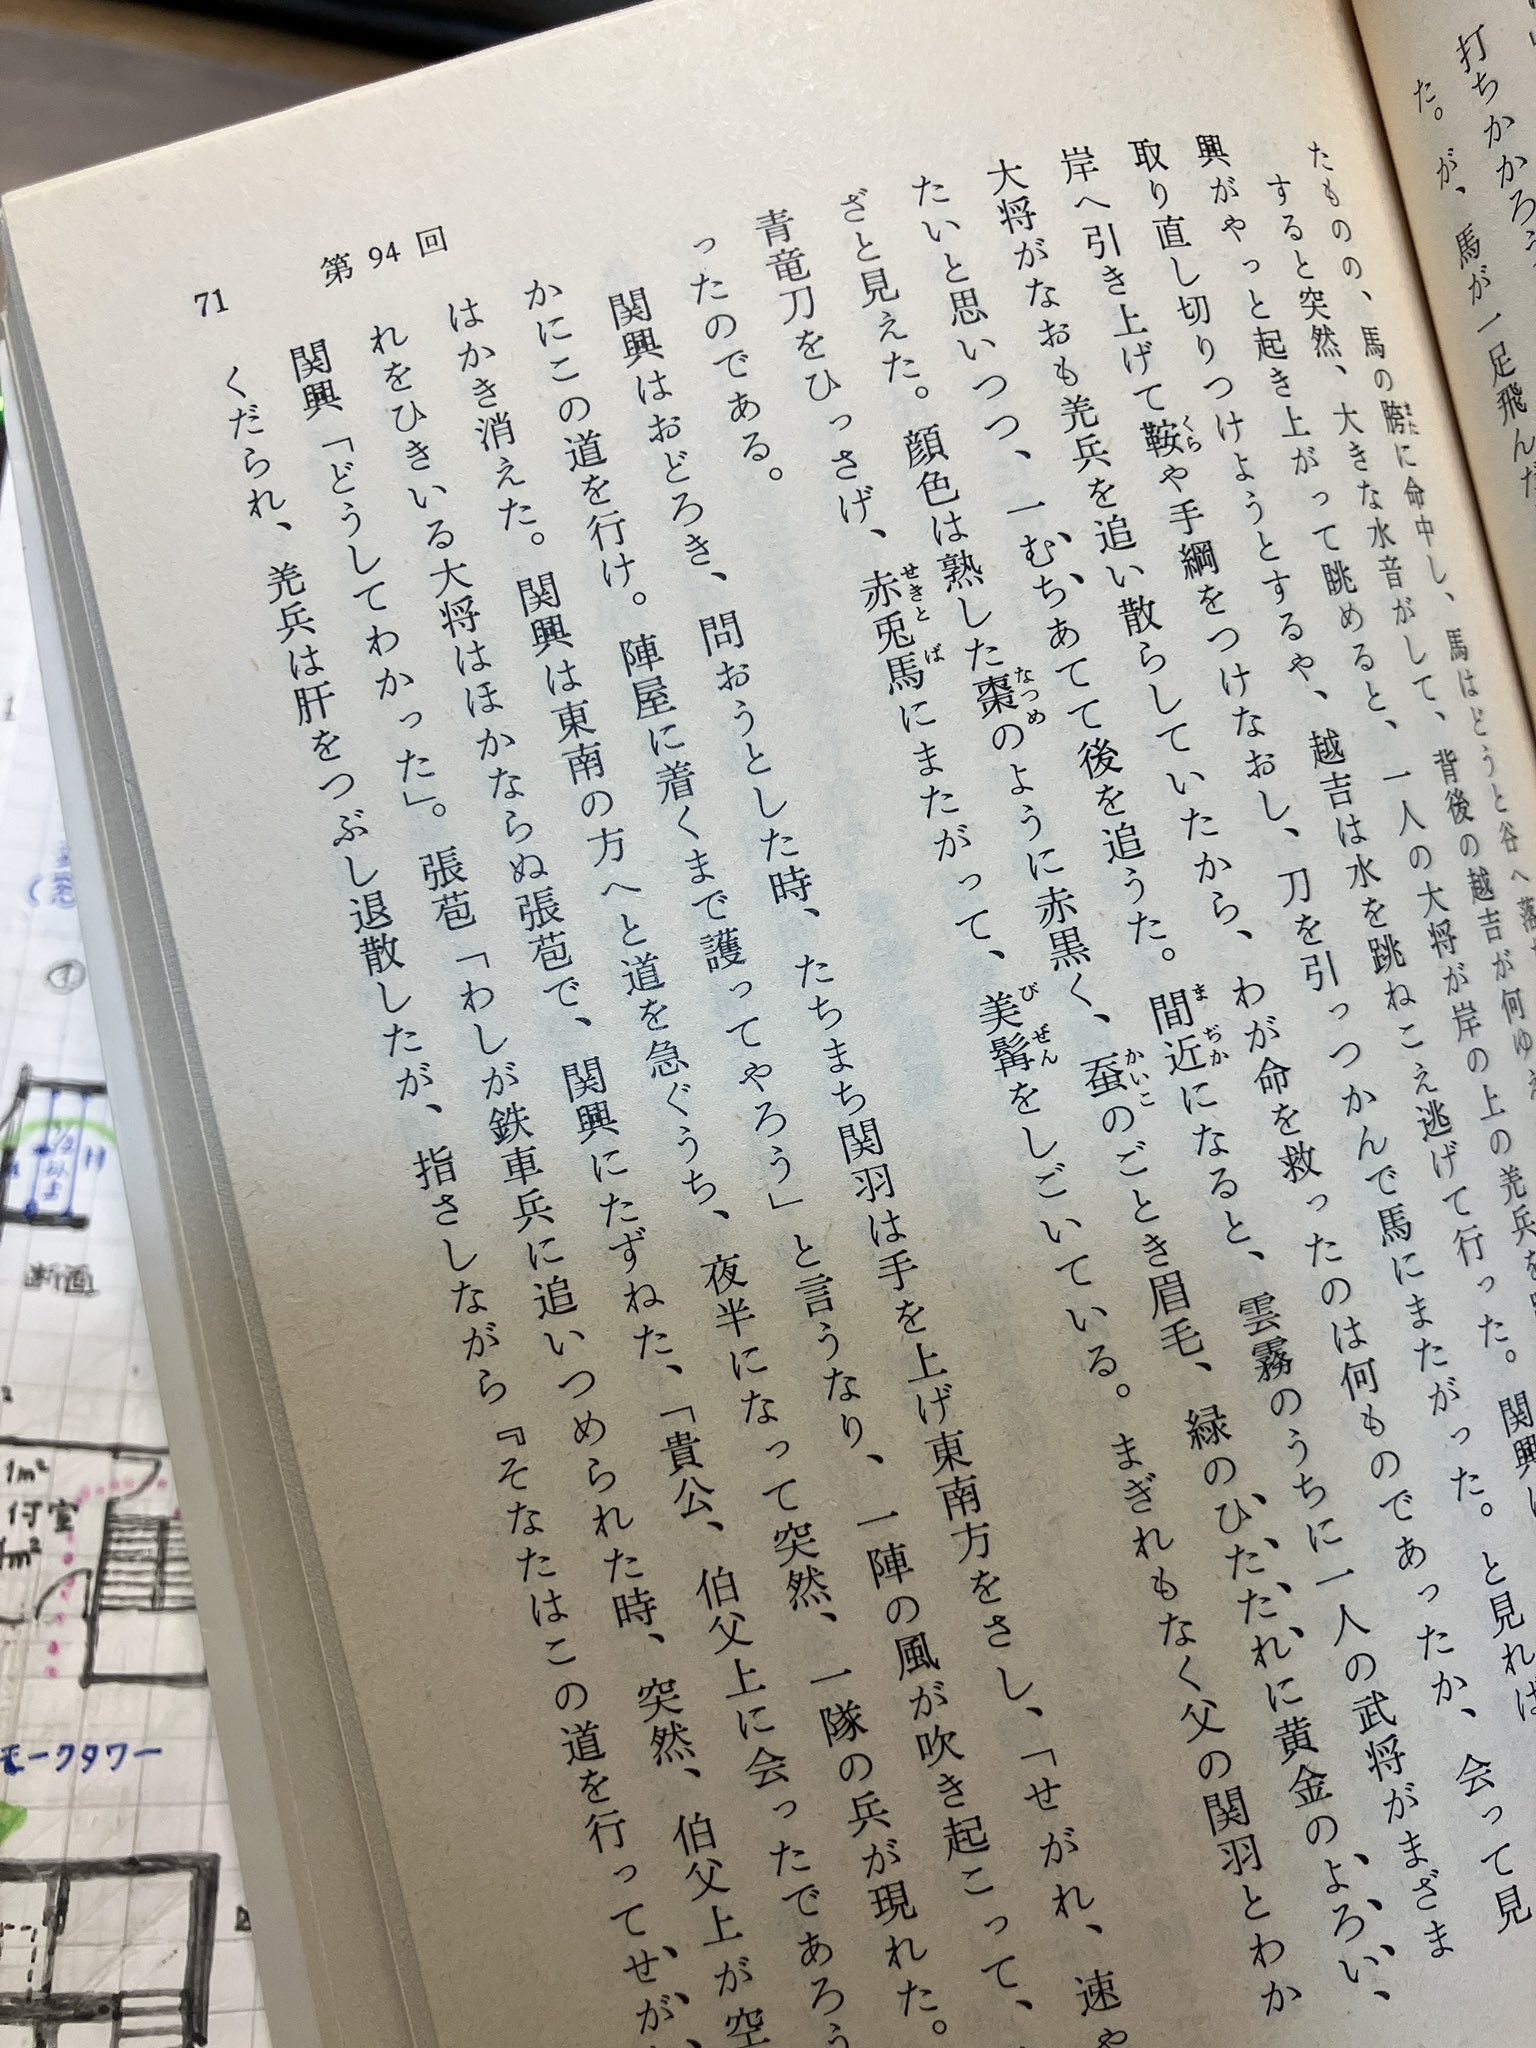 打ちかかろう
た。が、馬が一足飛んだ
たものの、馬の胯に命中し、馬はどうと谷へ落
すると突然、大きな水音がして、背後の越吉が何ゆえ
興がやっと起き上がって眺めると、一人の大将が岸の上の羌兵を
取り直し切りつけようとするや、越吉は水を跳ねこえ逃げて行った。関興は
岸へ引き上げて鞍や手綱をつけなおし、刀を引っつかんで馬にまたがった。と見れば
大将がなおも羌兵を追い散らしていたから、わが命を救ったのは何ものであったか、会って見
たいと思いつつ、一むちあてて後を追うた。間近になると、雲霧のうちに一人の武将がまざま
ざと見えた。顔色は熟した棗のように赤黒く、蚕のごとき眉毛、緑のひたたれに黄金のよろい、
青竜刀をひっさげ、赤兎馬にまたがって、美髯をしごいている。まぎれもなく父の関羽とわか
ったのである。
関興はおどろき、問おうとした時、たちまち関羽は手を上げ東南方をさし、「せがれ、速や
かにこの道を行け。陣屋に着くまで護ってやろう」と言うなり、一陣の風が吹き起こって、
はかき消えた。関興は東南の方へと道を急ぐうち、夜半になって突然、一隊の兵が現れた。
れをひきいる大将はほかならぬ張苞で、関興にたずねた、「貴公、伯父上に会ったであろう
関興「どうしてわかった」。張苞「わしが鉄車兵に追いつめられた時、突然、伯父上が空
くだられ、羌兵は肝をつぶし退散したが、指さしながら『そなたはこの道を行ってせが
第94回
71
断面
1m²
付室
モークタワー